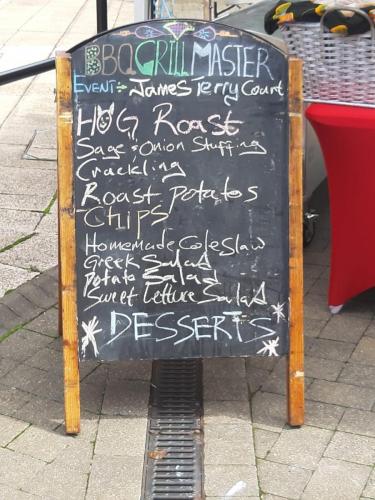 BBQ GRILL MASTER
EVENT: JAMES Terry Court
HOG Roast
Sage & Onion Stuffing
Crackling
Roast potatos
Chips
Homemade Coleslaw
Greek Salad
Potato Salad
Sweet Lettuce Salad
DESSERTS